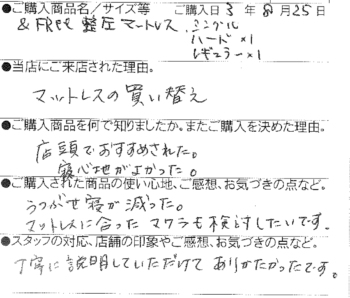 ●ご購入商品名／サイズ等　ご購入日 3 年 8 月 25 日
& FREE 整圧マットレス シングル
ハード×1
レギュラー×1
●当店にご来店された理由。
マットレスの買い替え
●ご購入商品を何で知りましたか。またご購入を決めた理由。
店頭でおすすめされた。
寝心地がよかった。
●ご購入された商品の使い心地、ご感想、お気づきの点など。
うつぶせ寝が減った。
マットレスに合ったマクラも検討したいです。
●スタッフの対応、店舗の印象やご感想、お気づきの点など。
丁寧に説明していただけてありがたかったです。